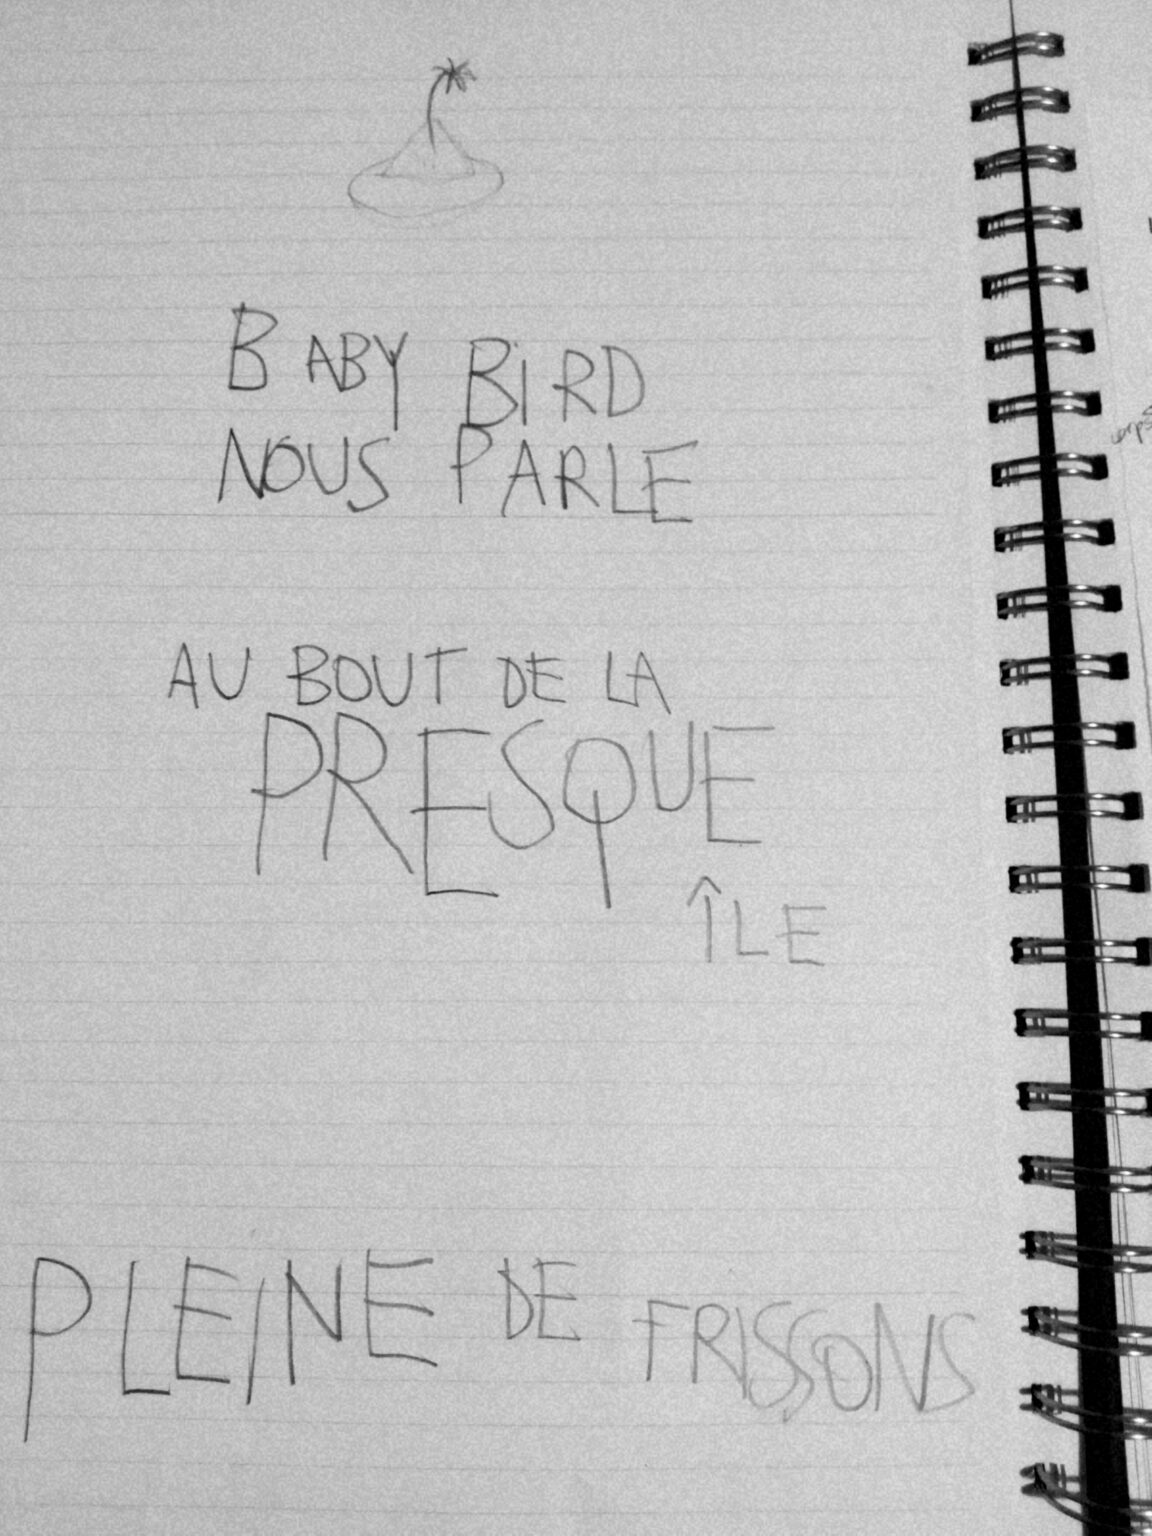 BABY BIRD
NOUS PARLE
AU BOUT DE LA
PRESQUE
ÎLE
PLEINE DE FRISSONS